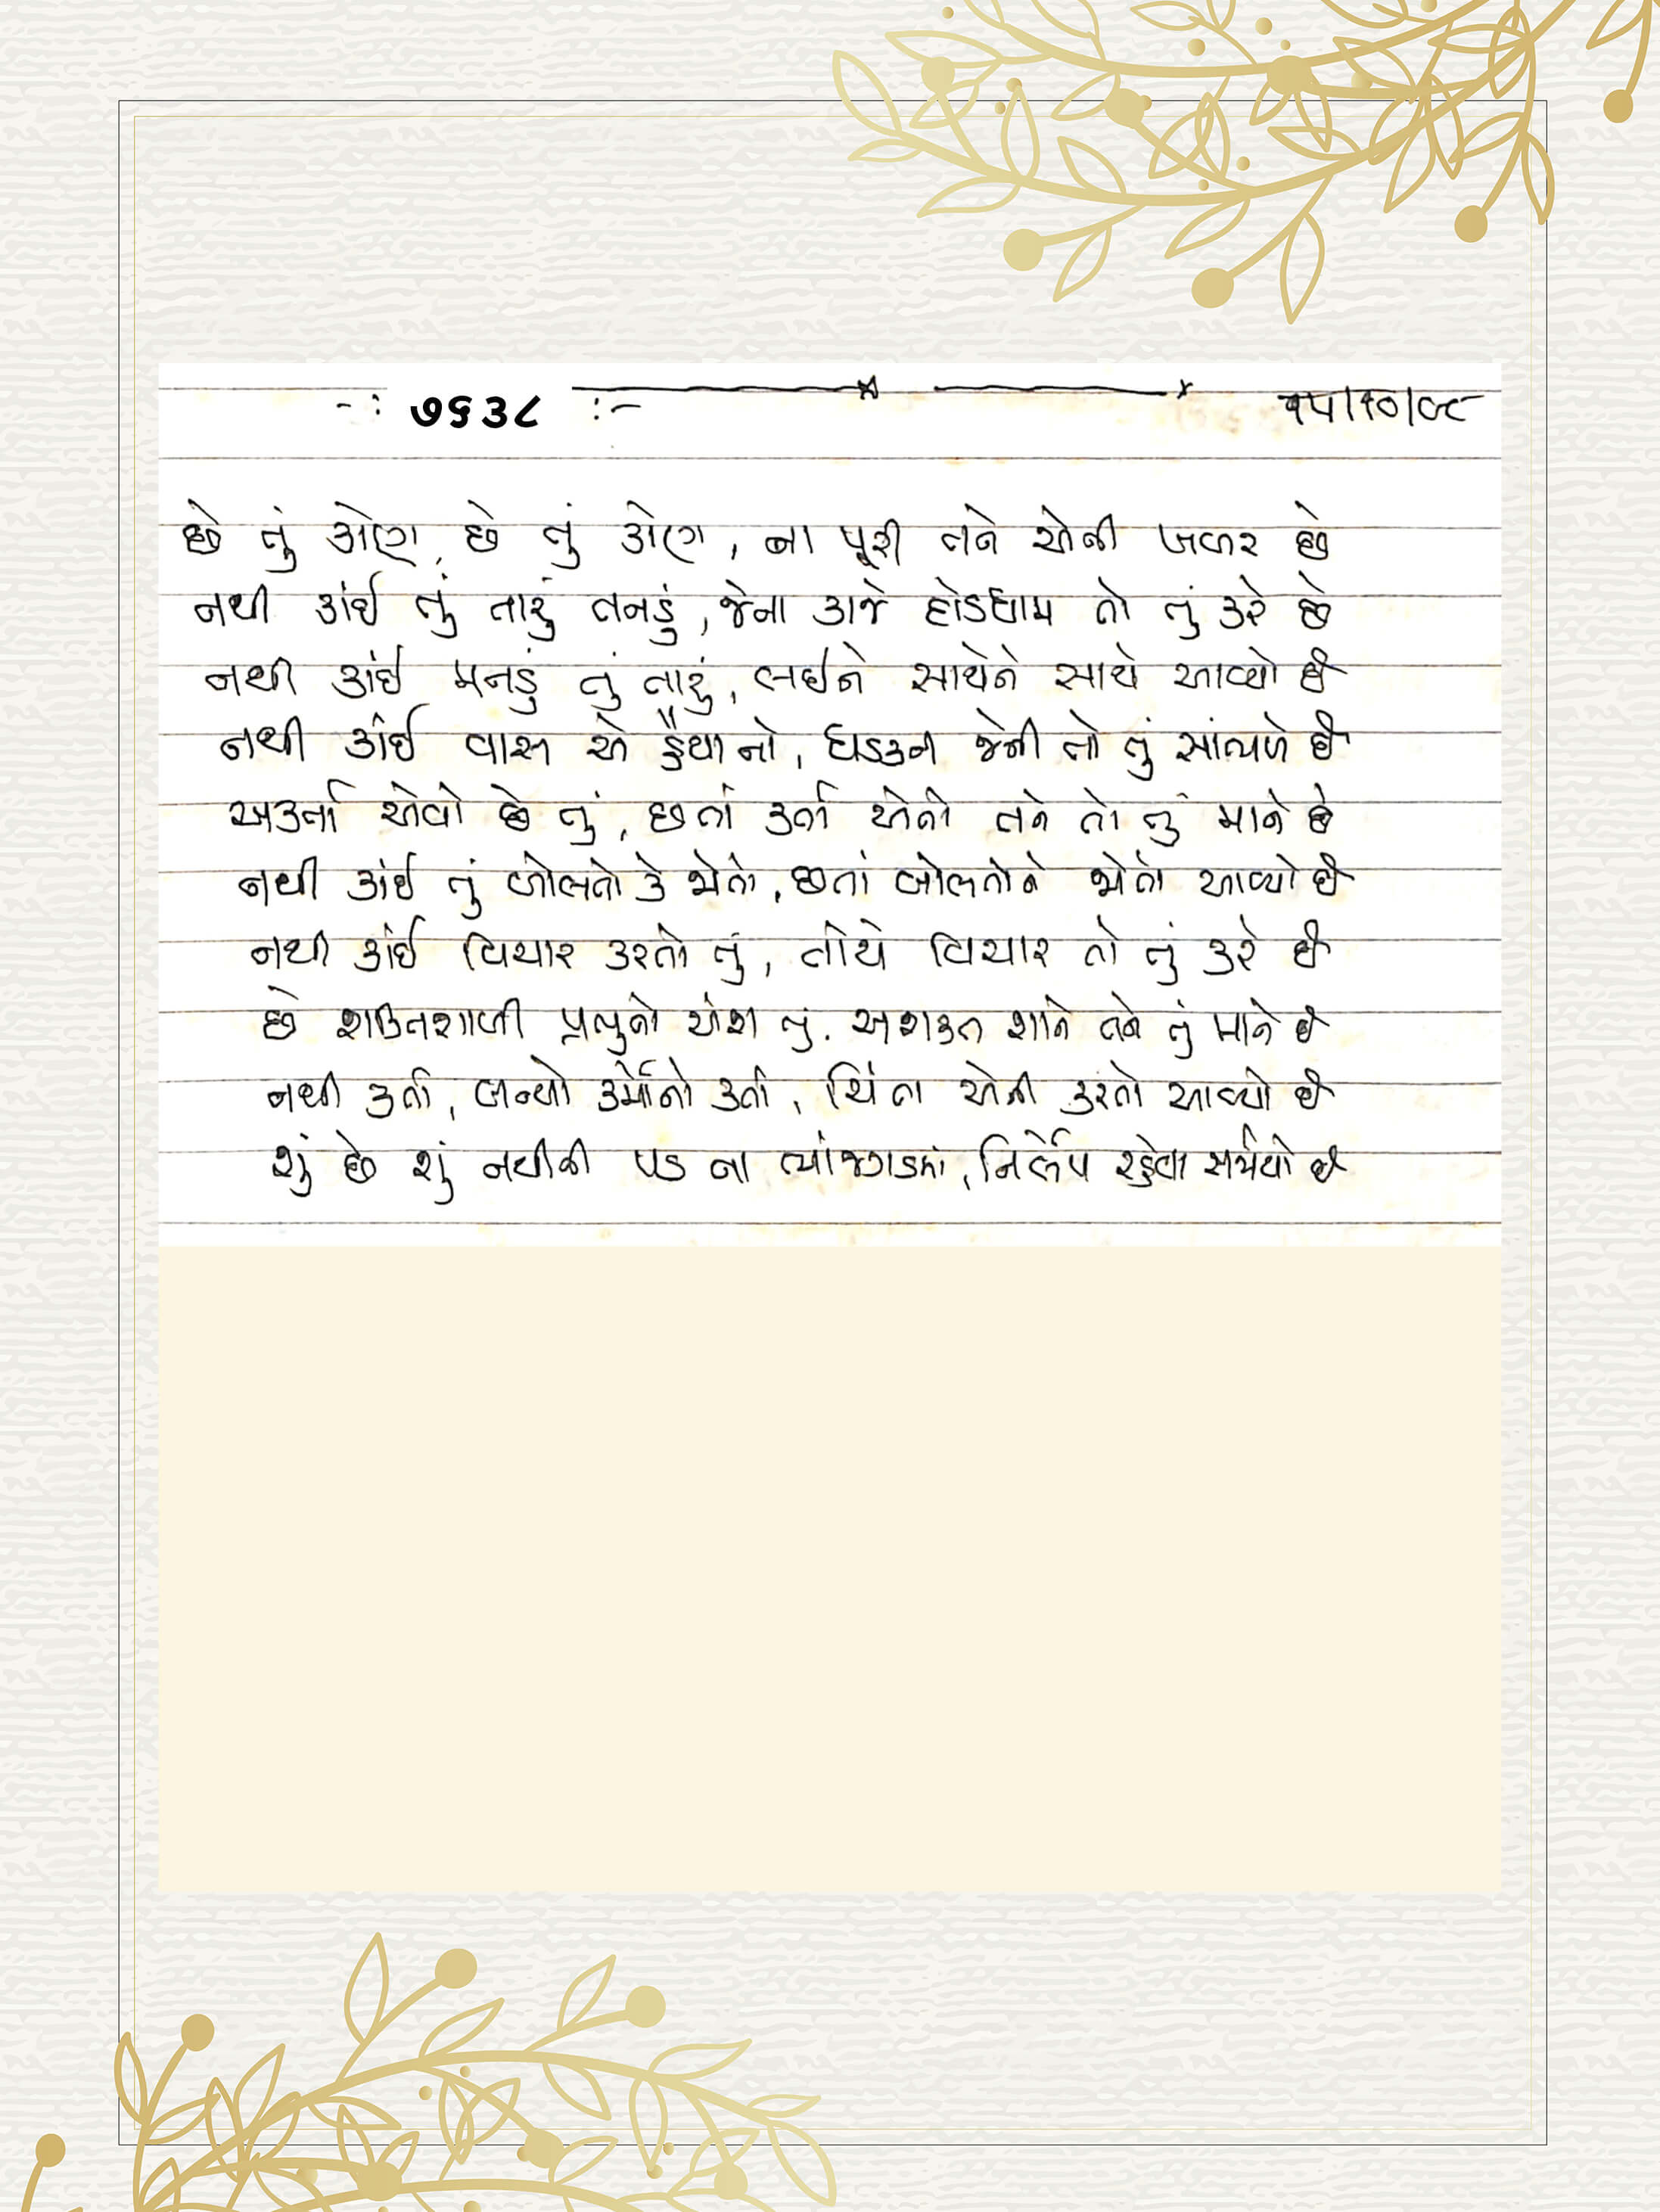 -: ૭૬૩૮ :-
૧૫/૧૦/૯૮
છે તું કોણ, છે તું કોણ, ના પૂરી તને એની ખબર છે
નથી કાંઈ તું તારું તનડું, જેના કાજે દોડધામ તો તું કરે છે
નથી કાંઈ મનડું તું તારું, લઈને સાથેને સાથે આવ્યો છે
નથી કાંઈ વાસ એ હૈયાનો, ધડકન જેની તો તું સાંભળે છે
અકર્તા એવો છે તું, છતાં કર્તા એનો તને તો તું માને છે
નથી કાંઈ તું બોલતો કે જોતો, છતાં બોલતોને જોતો આવ્યો છે
નથી કાંઈ વિચાર કરતો તું, તોયે વિચાર તો તું કરે છે
છે શક્તિશાળી પ્રભુનો અંશ તું, અશક્ત શાને તને તું માને છે
નથી કર્તા, બન્યો કર્મોનો કર્તા, ચિંતા એની કરતો આવ્યો છે
શું છે શું નથીની પડ ના ભાંજગડમાં, નિર્લેપ રહેવા સર્જાયો છે